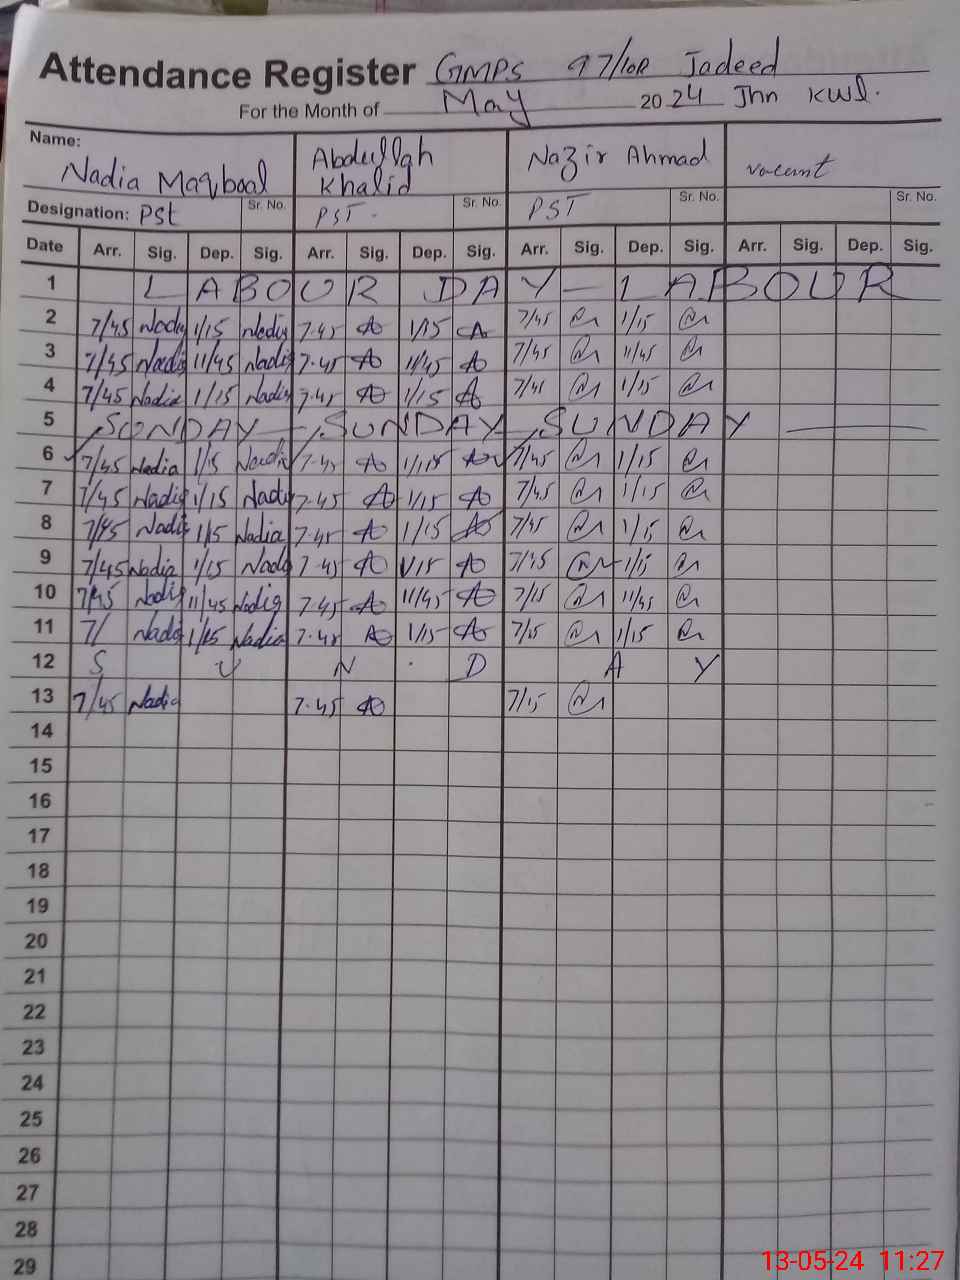 Attendance Register GMPS 97/10R Jadeed
For the Month of May 2024 Jhn KWL.
Name: Nadia Maqbool Abdullah Khalid Nazir Ahmad vacant
Designation: Pst Sr. No. PST. Sr. No. PST Sr. No. Sr. No.
Date Arr. Sig. Dep. Sig. Arr. Sig. Dep. Sig. Arr. Sig. Dep. Sig. Arr. Sig. Dep. Sig.
1 LABOUR DAY - LABOUR
2 7/45 Nadia 1/15 Nadia 7.45 1/15 7/45 1/15
3 7/45 Nadia 11/45 Nadia 7.45 11/45 7/45 11/45
4 7/45 Nadia 1/15 Nadia 7.45 1/15 7/45 1/15
5 SUNDAY - SUNDAY - SUNDAY
6 7/45 Nadia 1/15 Nadia 7.45 1/15 7/45 1/15
7 7/45 Nadia 1/15 Nadia 7.45 1/15 7/45 1/15
8 7/45 Nadia 1/15 Nadia 7.45 1/15 7/45 1/15
9 7/45 Nadia 1/15 Nadia 7.45 1/15 7/45 1/15
10 7/45 Nadia 11/45 Nadia 7.45 11/45 7/15 11/45
11 7/ Nadia 1/15 Nadia 7.45 1/15 7/15 1/15
12 S U N D A Y
13 7/45 Nadia 7.45 7/15
14
15
16
17
18
19
20
21
22
23
24
25
26
27
28
29
13-05-24 11:27